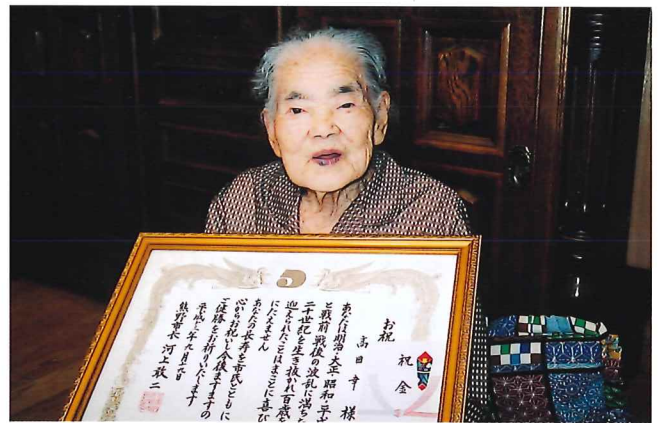 お祝
祝金
高田 幸 様
あなたは明治・大正・昭和・平
と戦前戦後の波乱に満ち
二十世紀を生き抜かれ百歳を
迎えられたことはまことに喜び
にたえません
あなたの長寿を市民とともに
心からお祝いし今後ますますの
ご健勝をお祈りいたします
平成 年九月 日
熊野市長 河上敢二